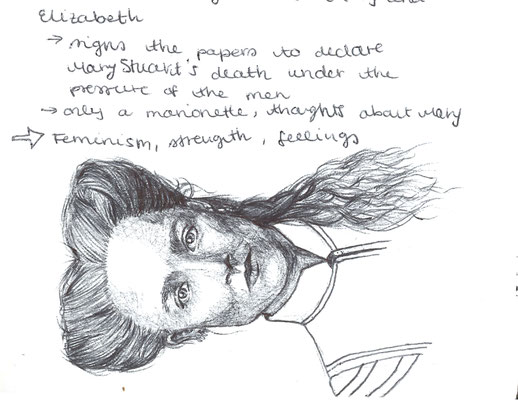 and
Elizabeth
→ signs the papers to declare
Mary Stuart's death under the
pressure of the men
→ only a marionette, thoughts about Mary
⇨ Feminism, strength, feelings